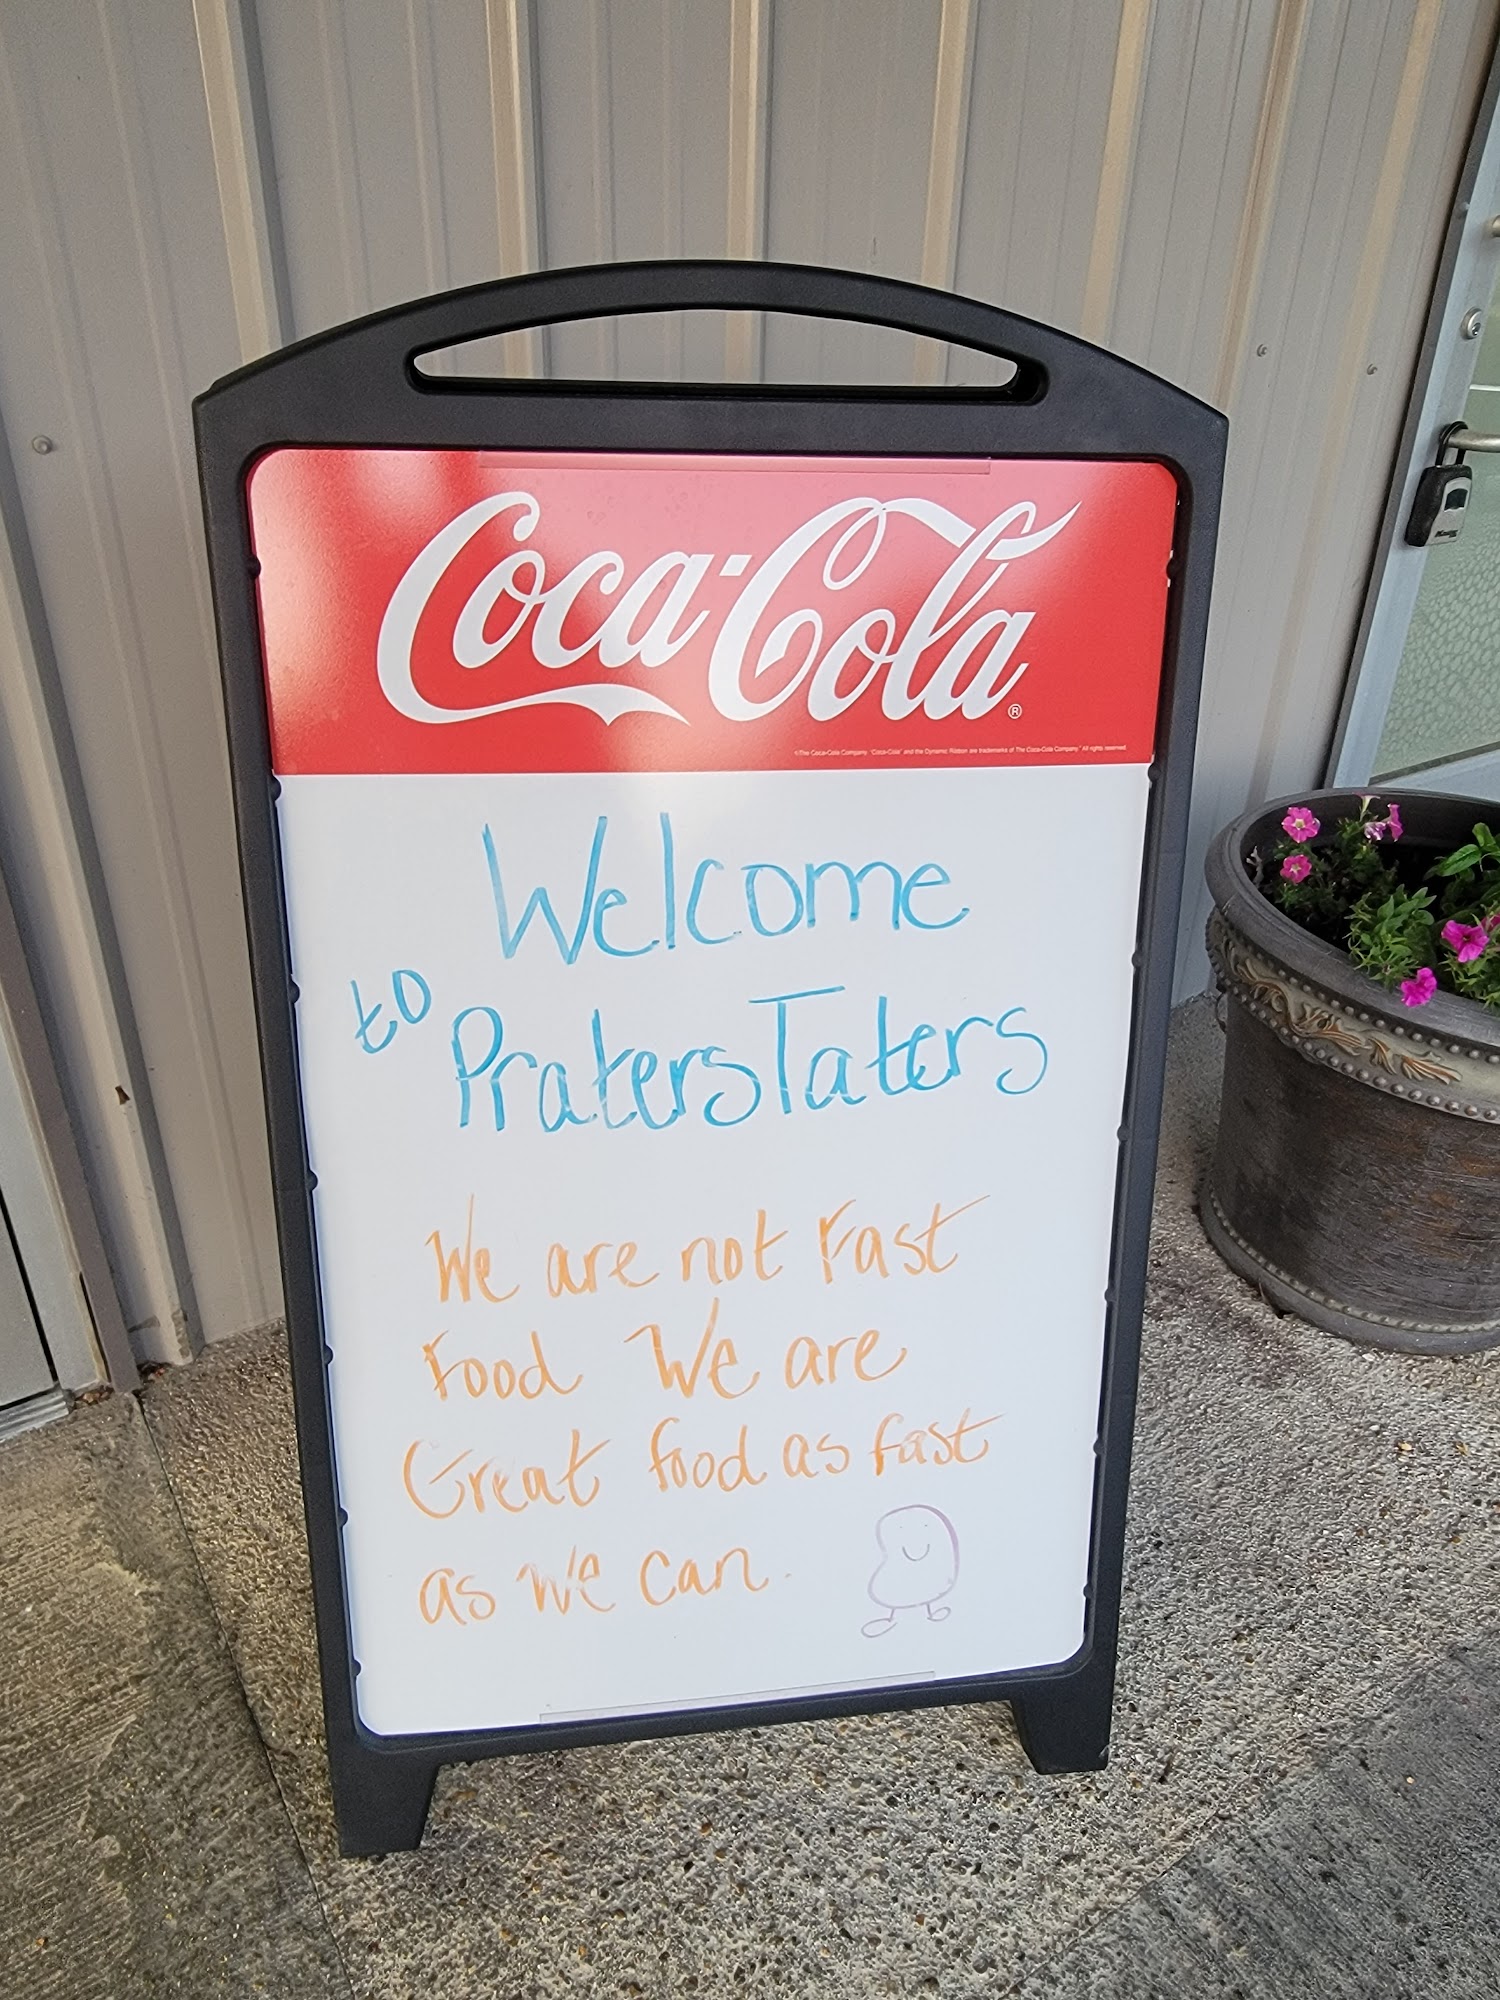 Coca-Cola ®
©The Coca-Cola Company. "Coca-Cola" and the Dynamic Ribbon are trademarks of The Coca-Cola Company. All rights reserved.
Welcome
to
Praters Taters
We are not Fast
Food We are
Great food as fast
as we can.